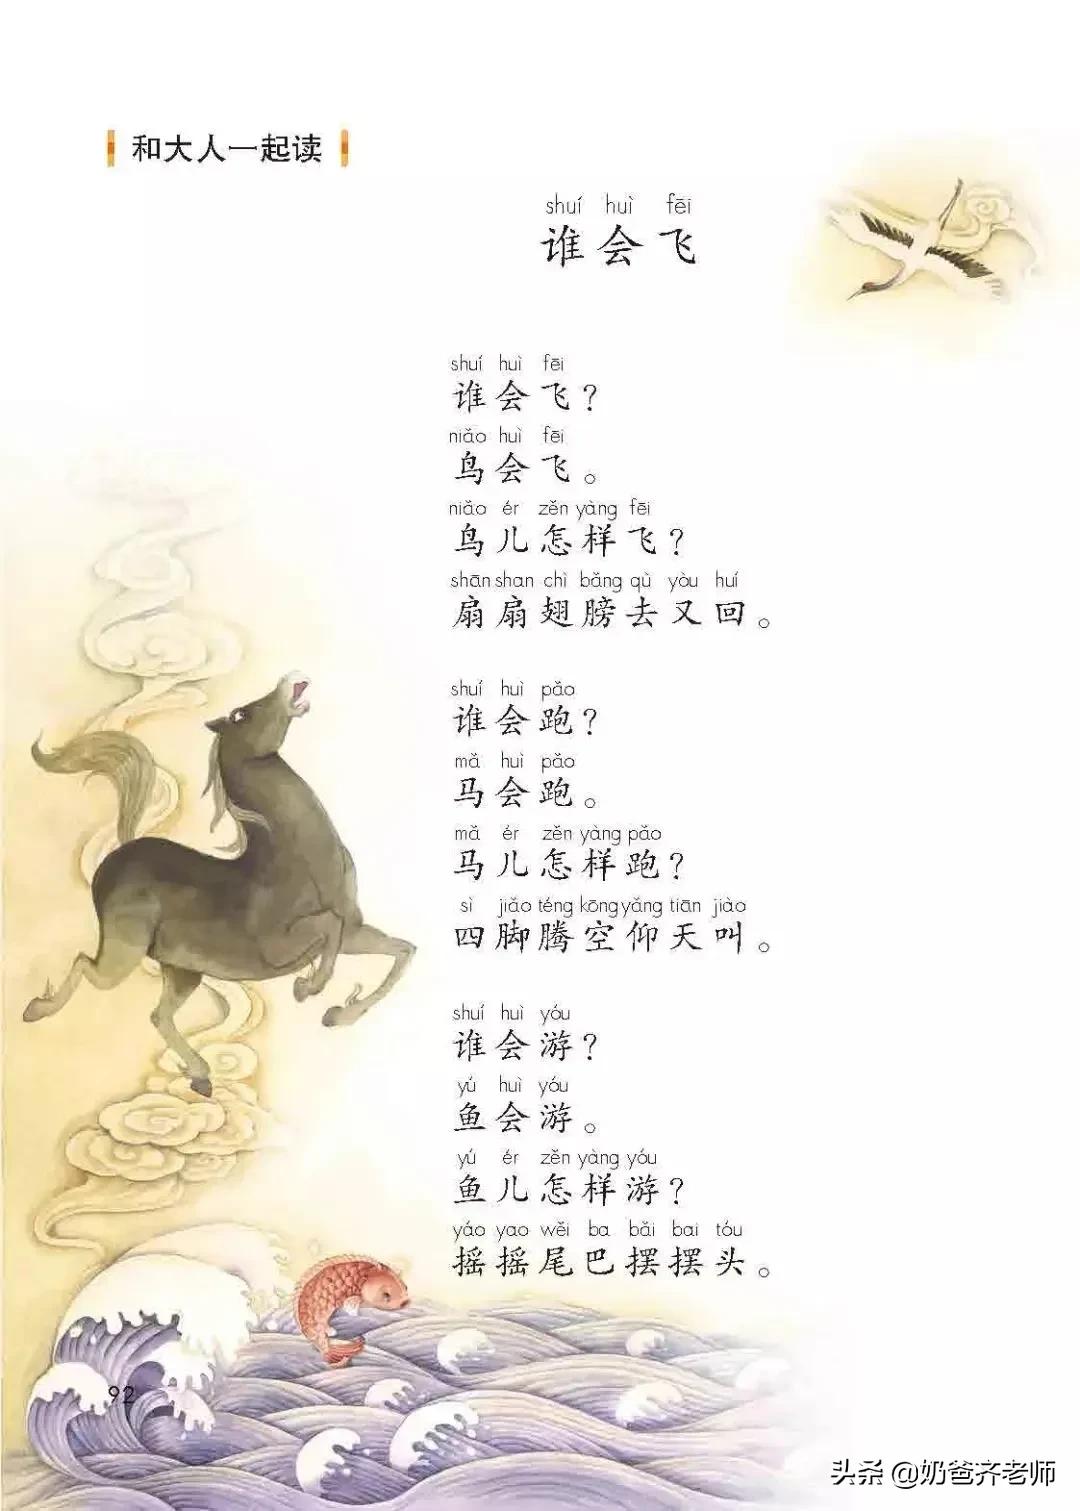 和大人一起读
shuí huì fēi
谁会飞
shuí huì fēi
谁会飞？
niǎo huì fēi
鸟会飞。
niǎo ér zěn yàng fēi
鸟儿怎样飞？
shān shan chì bǎng qù yòu huí
扇扇翅膀去又回。
shuí huì pǎo
谁会跑？
mǎ huì pǎo
马会跑。
mǎ ér zěn yàng pǎo
马儿怎样跑？
sì jiǎo téng kōng yǎng tiān jiào
四脚腾空仰天叫。
shuí huì yóu
谁会游？
yú huì yóu
鱼会游。
yú ér zěn yàng yóu
鱼儿怎样游？
yáo yao wěi ba bǎi bai tóu
摇摇尾巴摆摆头。
92
头条 @奶爸齐老师